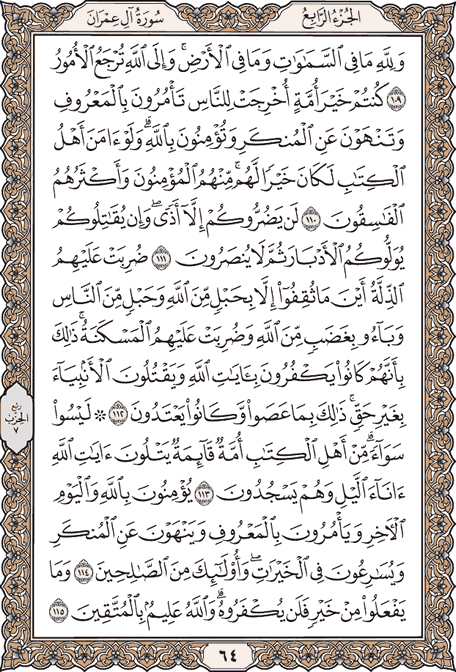 سُورَةُ آلِ عِمْرَانَ
الجُزْءُ الرَّابِعُ
وَلِلَّهِ مَا فِي السَّمَٰوَٰتِ وَمَا فِي الْأَرْضِ ۚ وَإِلَى اللَّهِ تُرْجَعُ الْأُمُورُ
١٠٩ كُنتُمْ خَيْرَ أُمَّةٍ أُخْرِجَتْ لِلنَّاسِ تَأْمُرُونَ بِالْمَعْرُوفِ
وَتَنْهَوْنَ عَنِ الْمُنكَرِ وَتُؤْمِنُونَ بِاللَّهِ ۗ وَلَوْ ءَامَنَ أَهْلُ
الْكِتَٰبِ لَكَانَ خَيْرًا لَّهُم ۚ مِّنْهُمُ الْمُؤْمِنُونَ وَأَكْثَرُهُمُ
الْفَٰسِقُونَ ١١٠ لَن يَضُرُّوكُمْ إِلَّا أَذًى ۖ وَإِن يُقَٰتِلُوكُمْ
يُوَلُّوكُمُ الْأَدْبَارَ ثُمَّ لَا يُنصَرُونَ ١١١ ضُرِبَتْ عَلَيْهِمُ
الذِّلَّةُ أَيْنَ مَا ثُقِفُوٓا۟ إِلَّا بِحَبْلٍ مِّنَ اللَّهِ وَحَبْلٍ مِّنَ النَّاسِ
وَبَآءُو بِغَضَبٍ مِّنَ اللَّهِ وَضُرِبَتْ عَلَيْهِمُ الْمَسْكَنَةُ ۚ ذَٰلِكَ
بِأَنَّهُمْ كَانُوا۟ يَكْفُرُونَ بِـَٔايَٰتِ اللَّهِ وَيَقْتُلُونَ الْأَنۢبِيَآءَ
بِغَيْرِ حَقٍّ ۚ ذَٰلِكَ بِمَا عَصَوا۟ وَّكَانُوا۟ يَعْتَدُونَ ١١٢ ۞ لَيْسُوا۟
سَوَآءً ۗ مِّنْ أَهْلِ الْكِتَٰبِ أُمَّةٌ قَآئِمَةٌ يَتْلُونَ ءَايَٰتِ اللَّهِ
ءَانَآءَ الَّيْلِ وَهُمْ يَسْجُدُونَ ١١٣ يُؤْمِنُونَ بِاللَّهِ وَالْيَوْمِ
الْءَاخِرِ وَيَأْمُرُونَ بِالْمَعْرُوفِ وَيَنْهَوْنَ عَنِ الْمُنكَرِ
وَيُسَٰرِعُونَ فِي الْخَيْرَٰتِ ۖ وَأُو۟لَٰٓئِكَ مِنَ الصَّٰلِحِينَ ١١٤ وَمَا
يَفْعَلُوا۟ مِنْ خَيْرٍ فَلَن يُكْفَرُوهُ ۗ وَاللَّهُ عَلِيمٌۢ بِالْمُتَّقِينَ ١١٥
ربع
الحزب
٧
٦٤